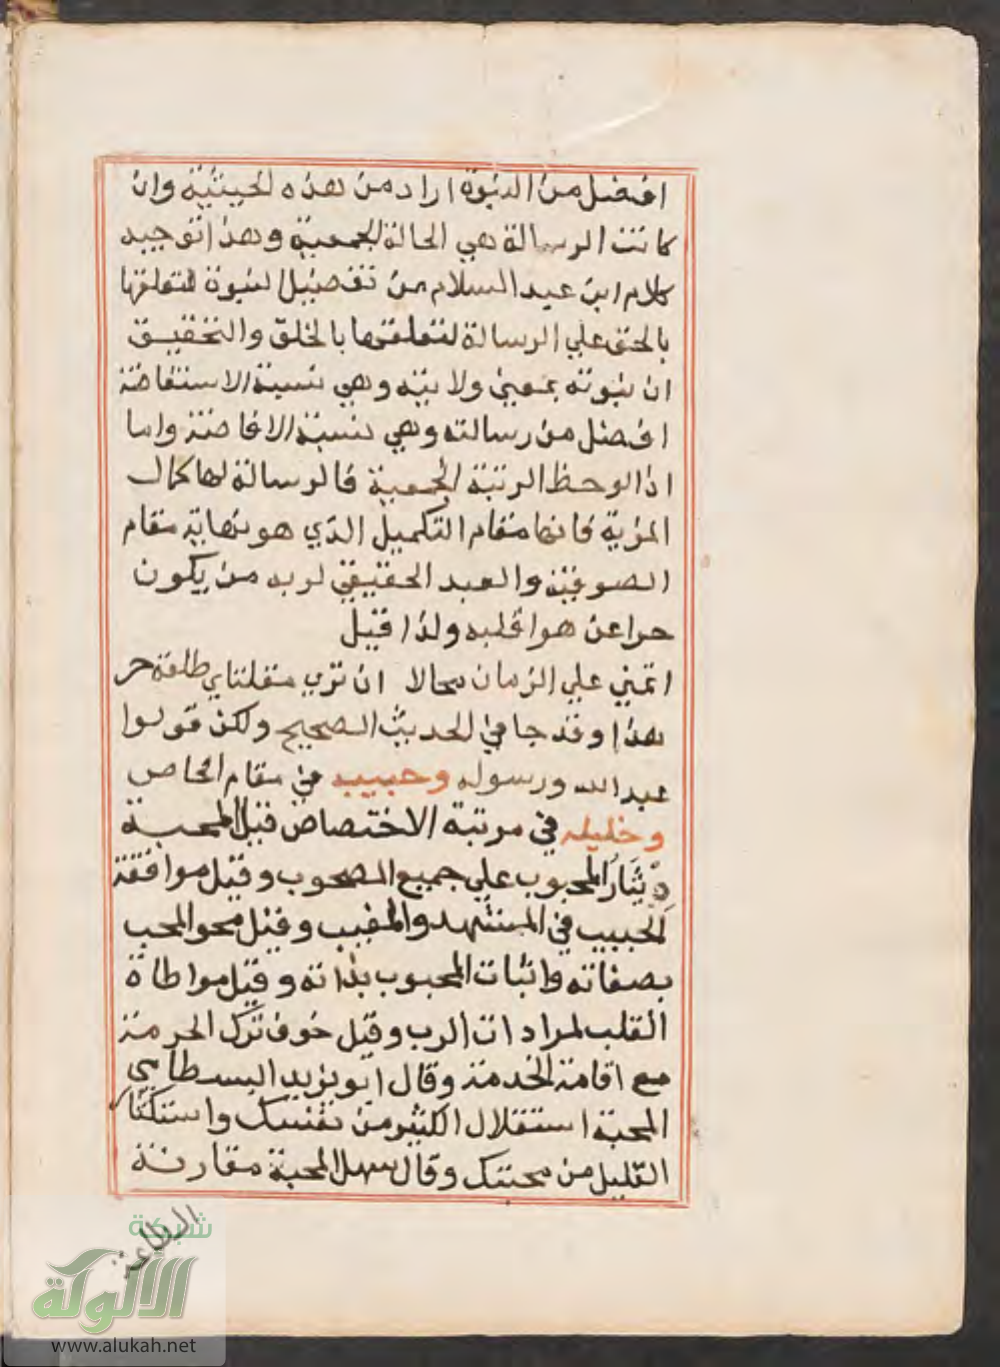 افضل من النبوة اراد من هذه الحيثية وان
كانت الرسالة هي الحالة الجمعية وهذا توجيه
كلام ابن عبد السلام من تفضيل النبوة لتعلقها
بالحق علي الرسالة لتعلقها بالخلق والتحقيق
ان نبوته بمعني ولايته وهي نسبة الاستفاضة
افضل من رسالته وهي نسبة الافاضة واما
اذا لوحظ الرتبة الجمعية فالرسالة لها كمال
المزية فانها مقام التكميل الذي هو نهاية مقام
الصوفية والعبد الحقيقي لربه من يكون
حرا عن هوا قلبه ولذا قيل
اتمني علي الزمان محالا ان تري مقلتاي طلعة حر
هذا وقد جا في الحديث الصحيح ولكن قولوا
عبد الله ورسوله وحبيبه في مقام الخاص
وخليله في مرتبة الاختصاص قيل المحبة
ايثار المحبوب علي جميع المصحوب وقيل موافقة
الحبيب في المشهد والمغيب وقيل محو المحب
بصفاته واثبات المحبوب بذاته وقيل مواطاة
القلب لمرادات الرب وقيل خوف ترك الحرمة
مع اقامة الخدمة وقال ابو يزيد البسطامي
المحبة استقلال الكثير من نفسك واستكثار
القليل من محبتك وقال سهل المحبة مقارنة
الطاعة
شبكة
الألوكة
www.alukah.net